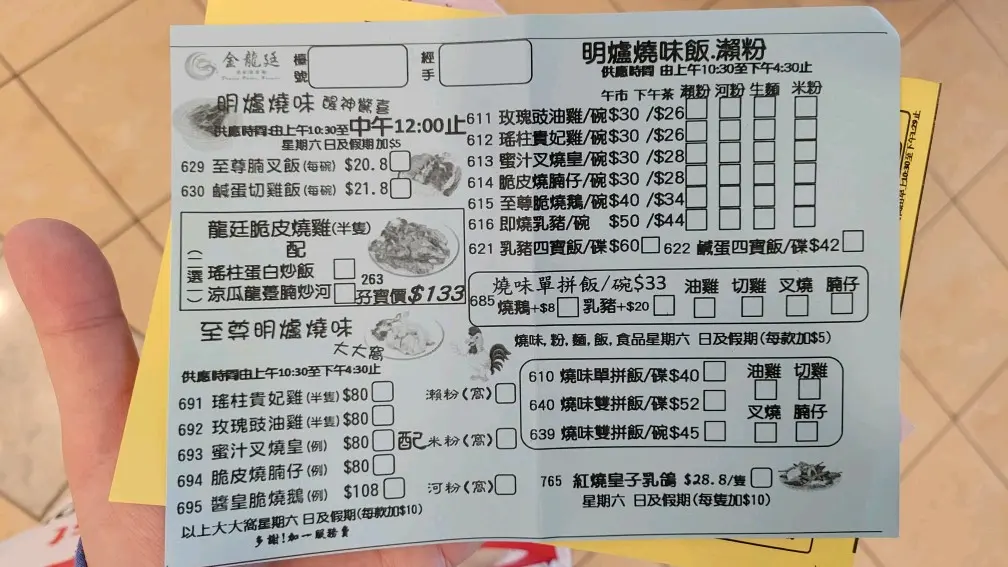 金龍廷
檯號
經手
明爐燒味 醒神驚喜
供應時間:由上午10:30至中午12:00止
星期六 日及假期加$5
629 至尊腩叉飯(每碗) $20.8
630 鹹蛋切雞飯(每碗) $21.8
龍廷脆皮燒雞(半隻)
配
(二選一)
瑤柱蛋白炒飯
涼瓜龍躉腩炒河
263
孖寶價$133
至尊明爐燒味
大大窩
供應時間由上午10:30至下午4:30止
691 瑤柱貴妃雞(半隻) $80
692 玫瑰豉油雞(半隻) $80
693 蜜汁叉燒皇(例) $80
694 脆皮燒腩仔(例) $80
695 醬皇脆燒鵝(例) $108
配
瀨粉(窩)
米粉(窩)
河粉(窩)
以上大大窩星期六 日及假期(每款加$10)
多謝!加一服務費
明爐燒味飯.瀨粉
供應時間 由上午10:30至下午4:30止
午市 下午茶 瀨粉 河粉 生麵 米粉
611 玫瑰豉油雞/碗$30 /$26
612 瑤柱貴妃雞/碗$30 /$26
613 蜜汁叉燒皇/碗$30 /$28
614 脆皮燒腩仔/碗$30 /$28
615 至尊脆燒鵝/碗$40 /$34
616 即燒乳豬/碗 $50 /$44
621 乳豬四寶飯/碟$60 622 鹹蛋四寶飯/碟$42
685 燒味單拼飯/碗$33 油雞 切雞 叉燒 腩仔
燒鵝+$8 乳豬+$20
燒味,粉,麵,飯,食品星期六 日及假期(每款加$5)
610 燒味單拼飯/碟$40 油雞 切雞
640 燒味雙拼飯/碟$52 叉燒 腩仔
639 燒味雙拼飯/碗$45
765 紅燒皇子乳鴿 $28.8/隻
星期六 日及假期(每隻加$10)